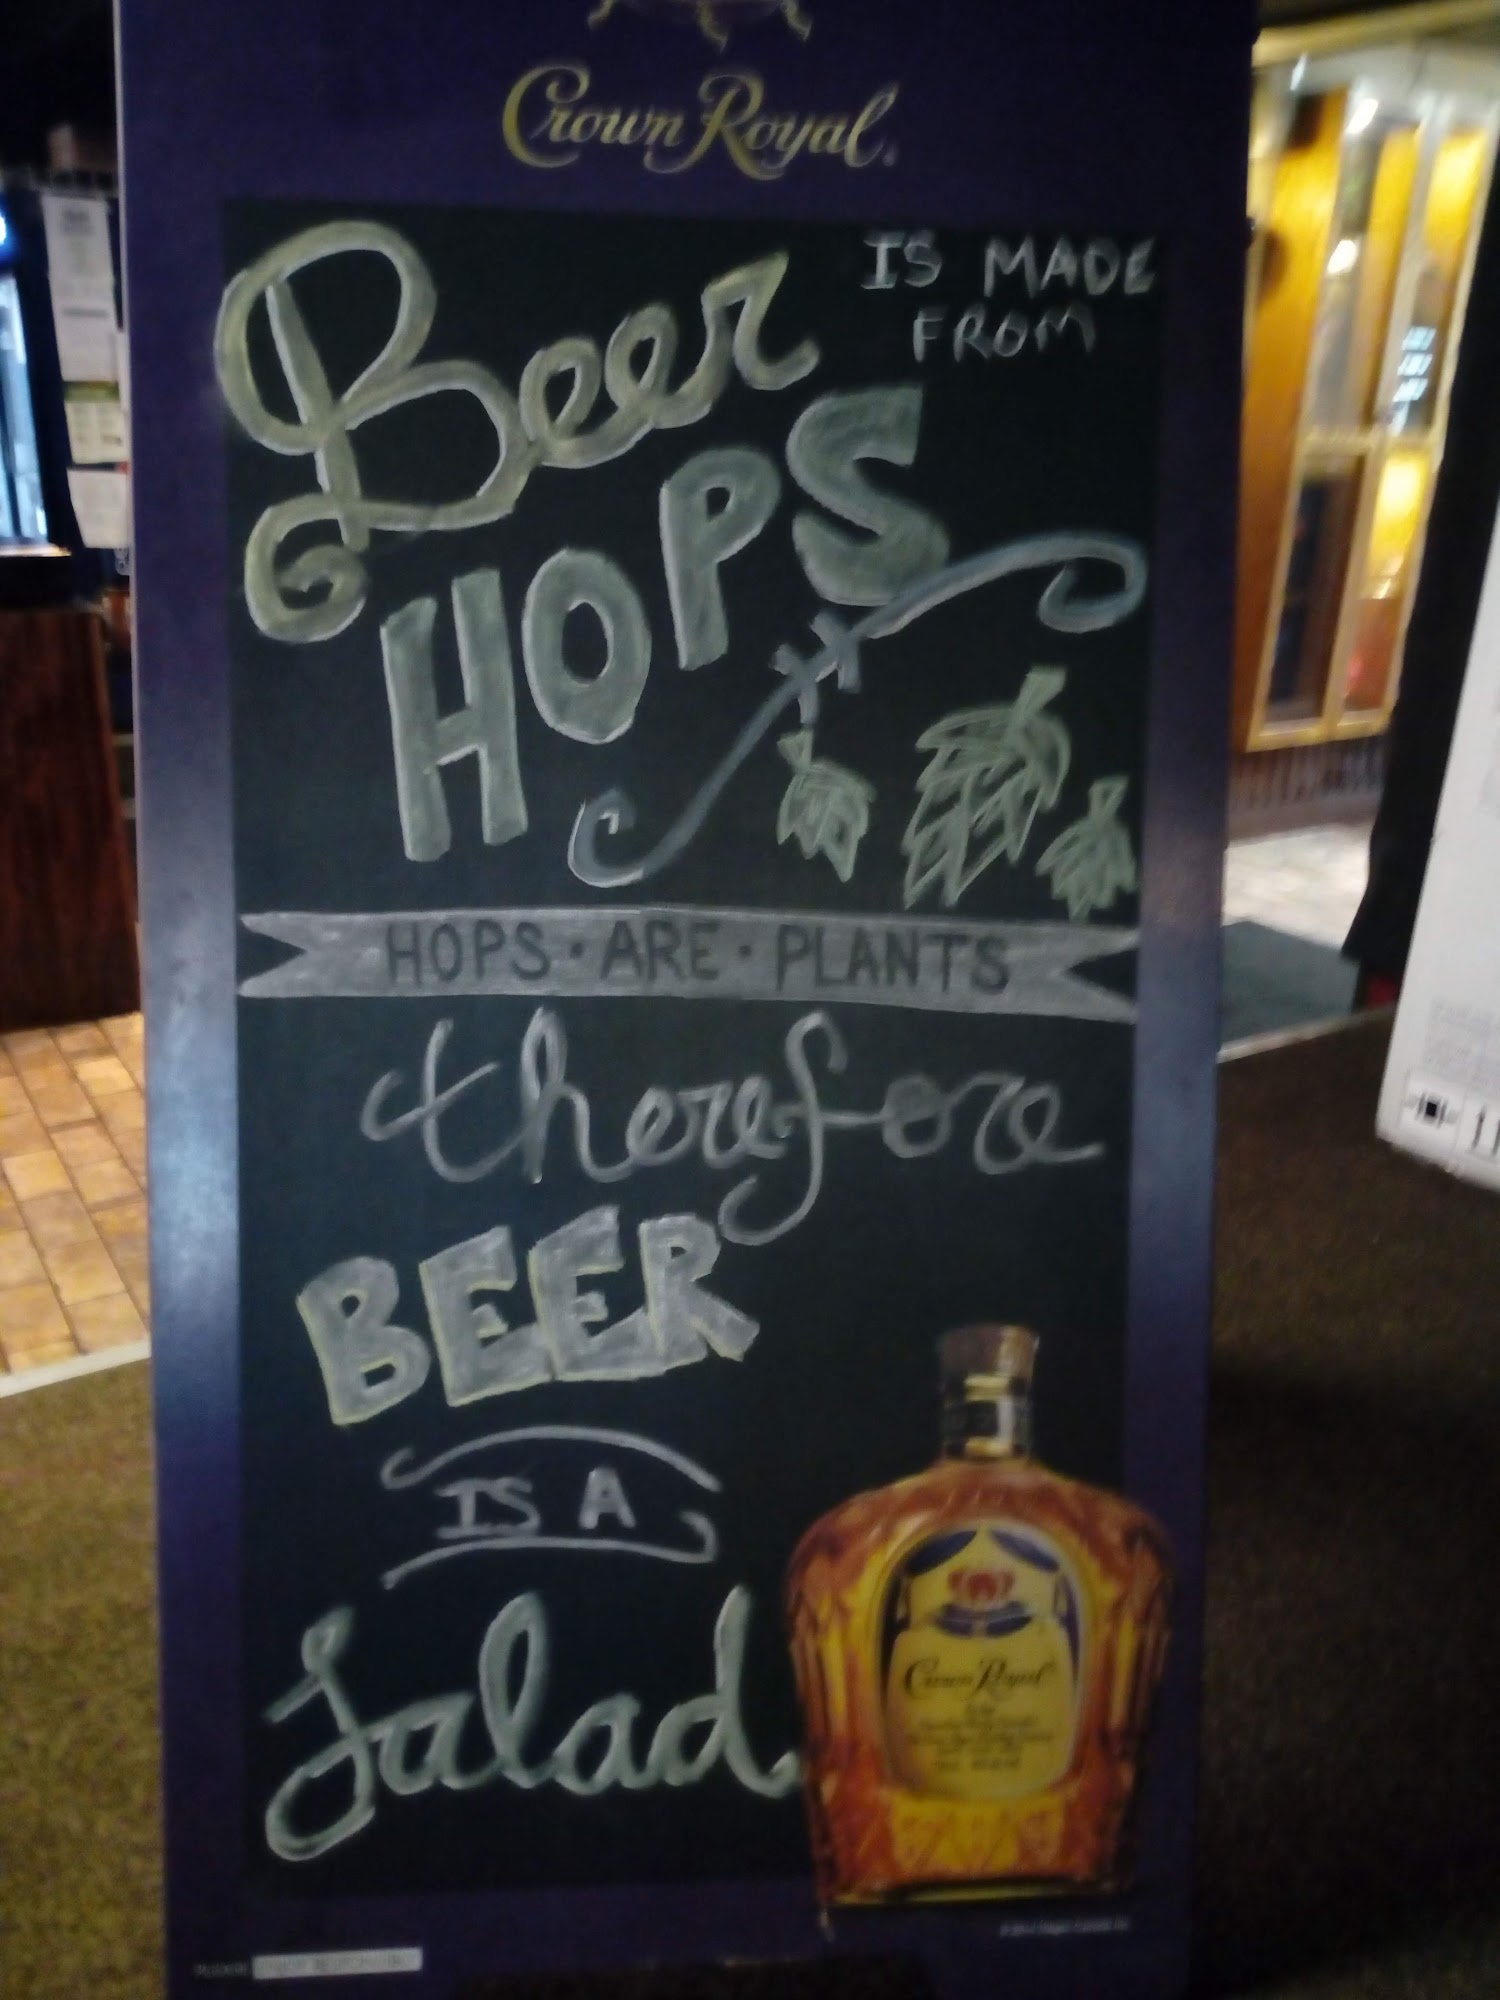 Crown Royal
Beer IS MADE
FROM
HOPS
HOPS · ARE · PLANTS
therefore
BEER
IS A
Salad
Crown Royal